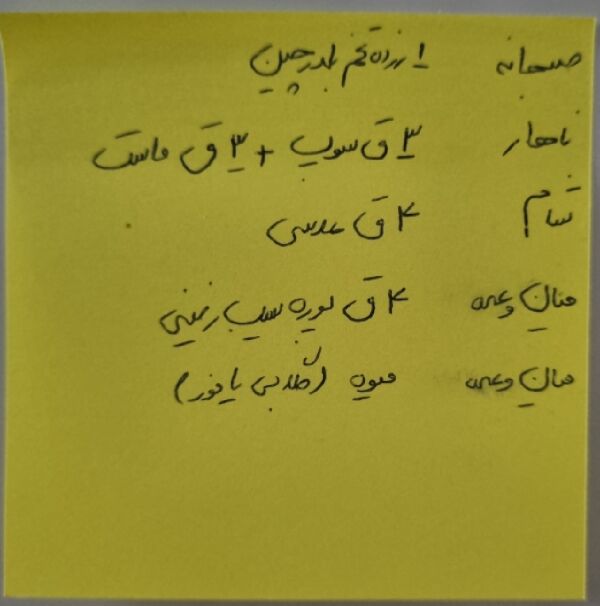 صبحانه ۱ زرده تخم بلدرچین
ناهار ۳ ق سوپ + ۳ ق ماست
شام ۴ ق عدسی
میان وعده ۴ ق پوره سیب زمینی
میان وعده میوه (گلابی یا موز)